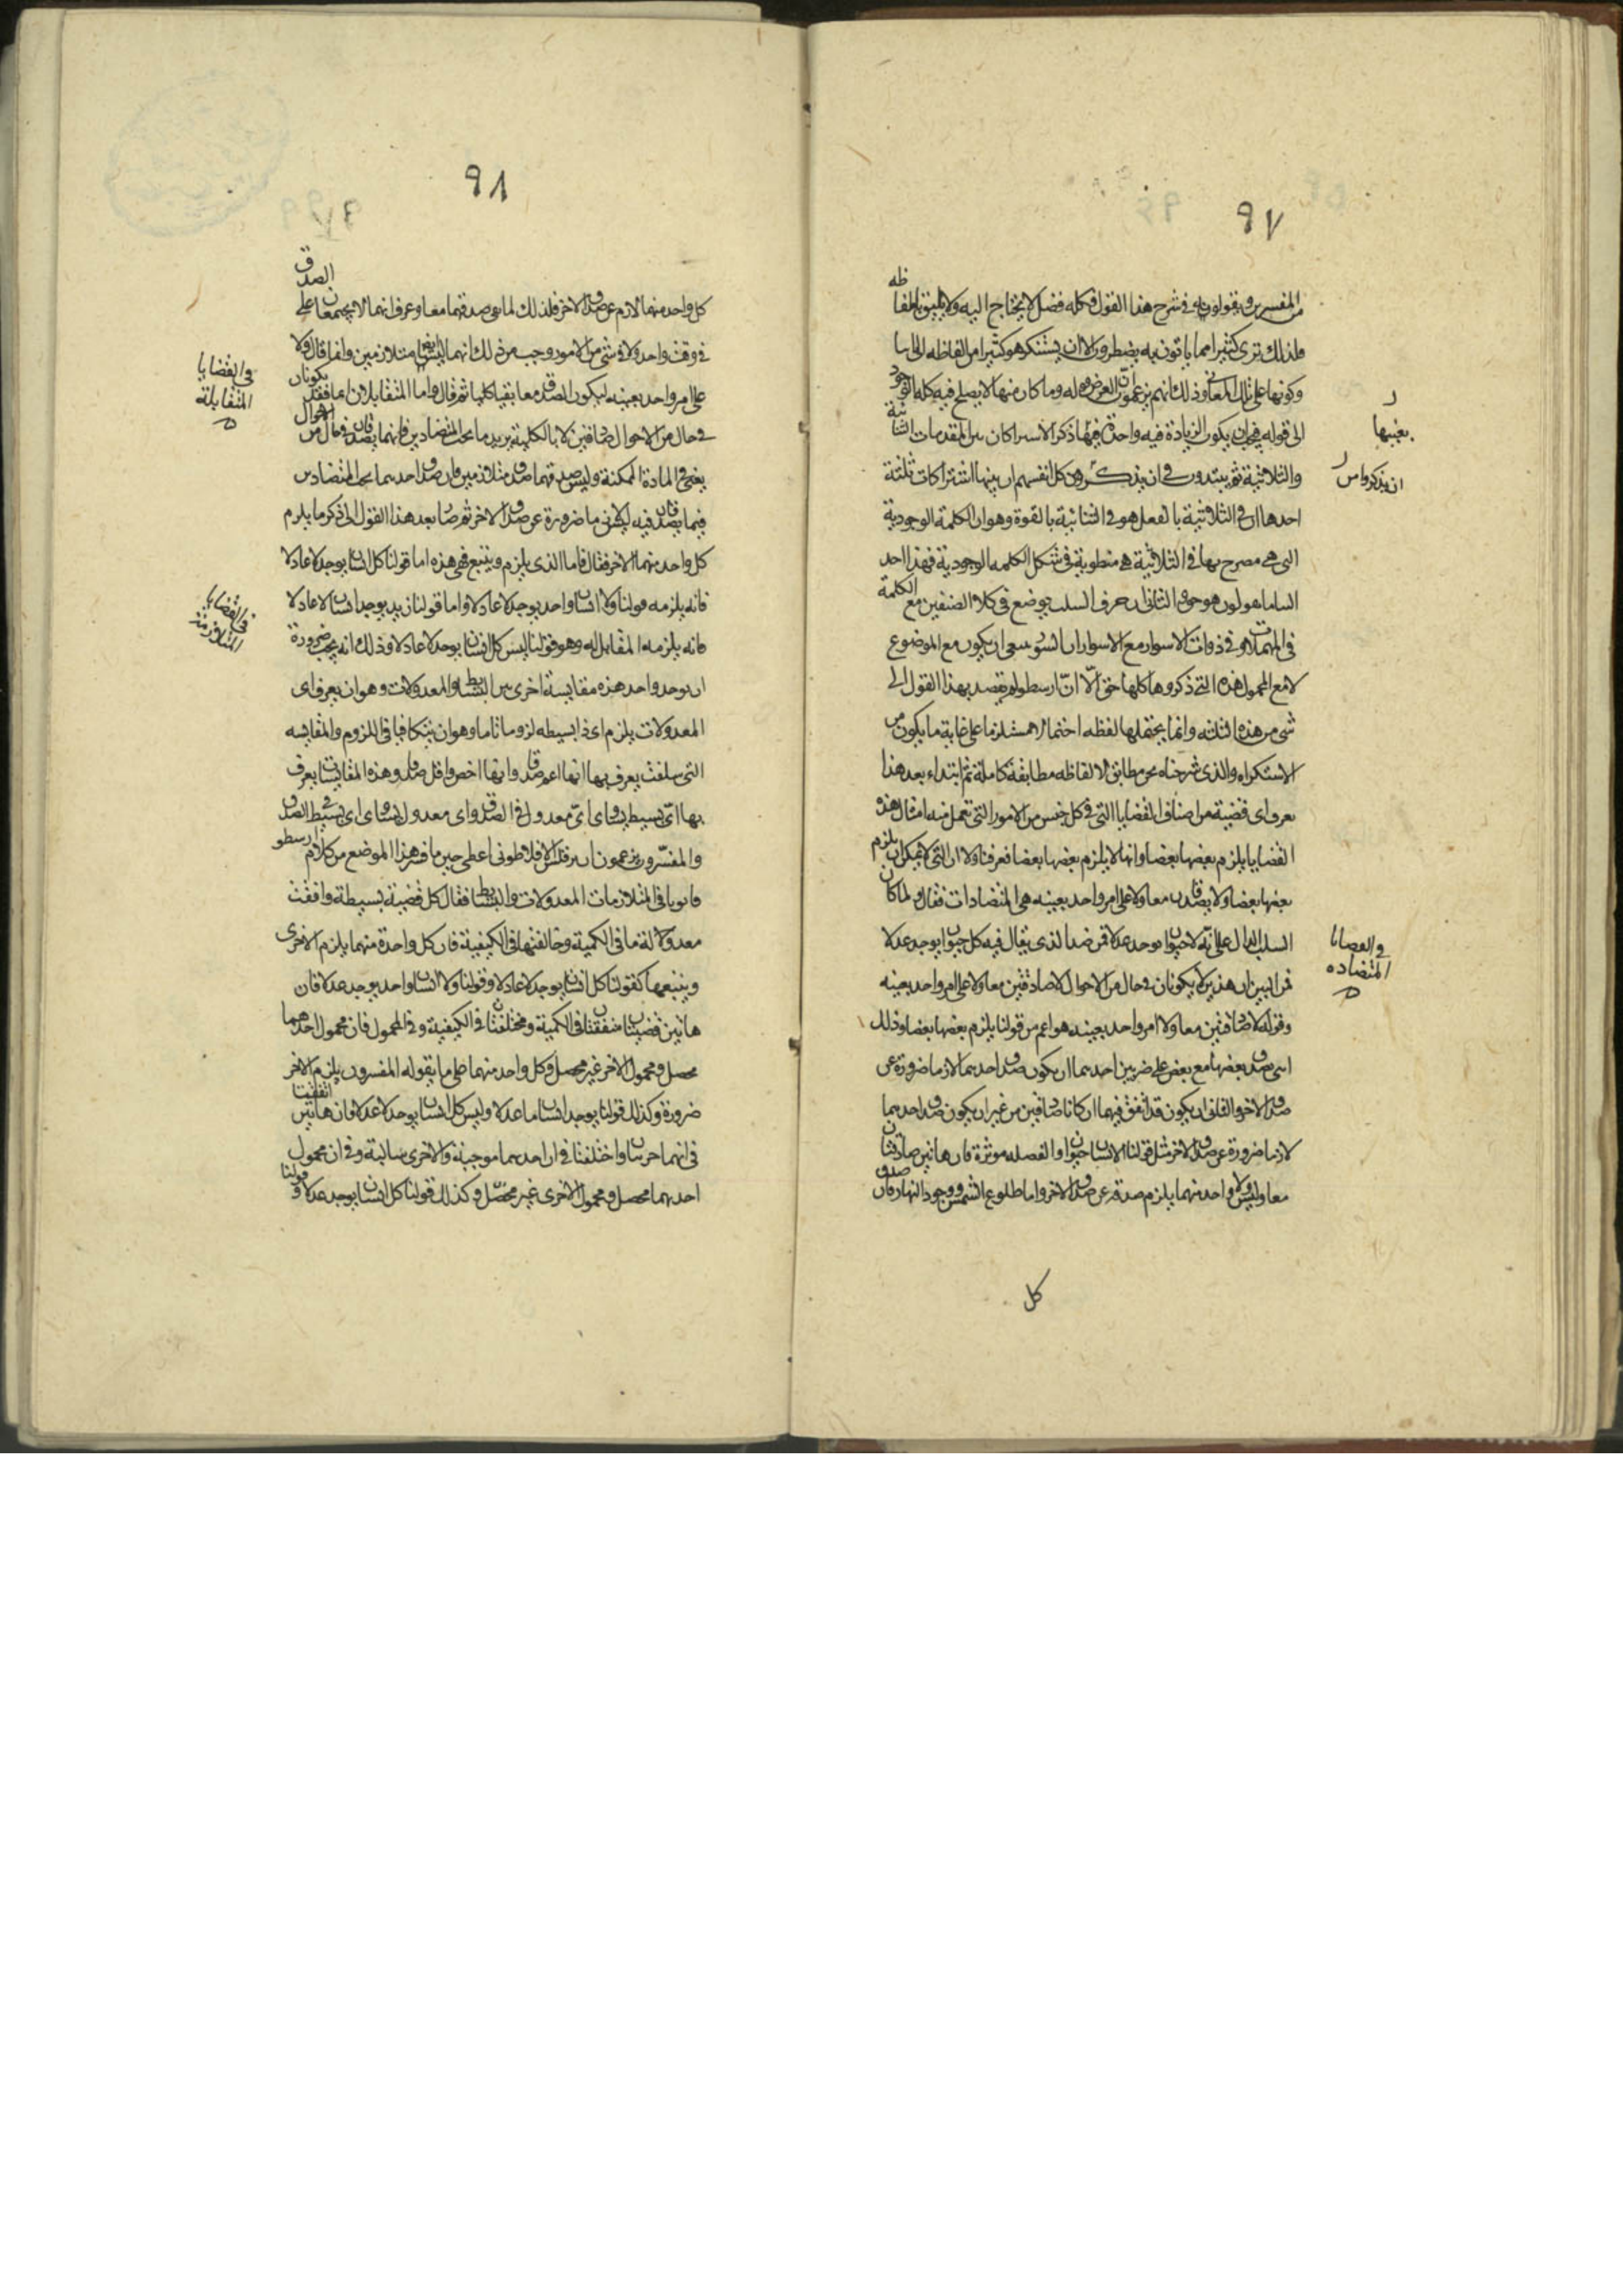 ٩٧
المفسرين ويقولونه في شرح هذا القول فكله فضل لا يحتاج اليه ولا يليق بالفاظه
فلذلك ترى كثيرا مما ياتون به يضطرون الى ان يستكرهو كثيرا من الفاظه الى
وكونها على تلك المعاني وذلك انهم يزعمون ان الغرض وما كان منها لا يصلح فيه كله
الى قوله فيجب ان يكون الزيادة فيه واحدة فيها ذكر الاشتراكات بين المقدمات الثنائية
والثلاثية ثم يبتدون في ان يذكروا من تلقاء انفسهم ان بينها اشتراكات ثلثة
احدها ان في الثلاثية بالفعل هو في الثنائية بالقوة وهو ان الكلمة الوجودية
التي هي مصرح بها في الثلاثية هي منطوية في شكل الكلمه الوجودية فهذا احد
والثاني ان حرف السلب يوضع في كلا الصنفين مع الكلمة
في المهملات وفي ذوات الاسوار مع الاسوار ان يكون مع الموضوع
لا مع المحمول هذه التي ذكروها كلها حق الا ان ارسطو لم يقصد بهذا القول الى
شي من هذه الثلثه وانما يحتملها لفظه احتمالا على غاية ما يكون من
الاستكراه والذي شرحناه نحن مطابق لالفاظه مطابقة كاملة ثم ابتداء بعد هذا
يعرف اي قضية من اصناف القضايا التي في كل جنس من الامور التي تعمل منه امثال هذه
القضايا يلزم بعضها بعضا وايها لا يلزم بعضها بعضا فعرفنا اولا ان التي لا يمكن ان يلزم
بعضها بعضا ولا يصدقان معا ولا على امر واحد بعينه هي المتضادات فقال ولما كان
السلب الدال على انه لا حيوان يوجد عدلا ضد الذي يقال فيه كل حيوان يوجد عدلا
فمن البين ان هذين لا يكونان في حال من الاحوال لا صادقين معا ولا على امر واحد بعينه
وقوله لا صادقين معا ولا امر واحد بعينه هو اعم من قولنا يلزم بعضها بعضا وذلك
بعضها مع بعض على ضربين احدهما ان يكون صدق احدهما لازما ضرورة عن
صدق الاخر والثاني ان يكون قد اتفق فيهما ان كانا صادقين من غير ان يكون صدق احدهما
لازما ضرورة عن صدق الاخر مثل قولنا الانسان حيوان موثرة فان هاتين صادقتان
معا وليس ولا واحد منهما يلزم صدقه عن صدق الاخر واما طلوع الشمس ووجود النهار فان صدق
كل
بعينها
ان يذكروا من
في القضايا
المتضاده
٩٨
كل واحد منهما لازم عن صدق الاخر فلذلك لما نفي صدقهما معا وعرف انهما لا يجتمعان على الصدق
في وقت واحد ولا في شي من الامور وجب من ذلك انهما ليسا ايضا متلازمين وانما قال ولا
على امر واحد بعينه ليكون الصدق معا بقيا كليا ثم قال واما المتقابلان لهما فقد يكونان
في حال من الاحوال صادقين لا بالكلية يريد ما تحت المتضادين فانهما يصدقان في حال من الاحوال
يعني في المادة الممكنة وليس صدقهما صدق متلازمين فان صدق احدهما تحت المتضادين
فيما يصدقان فيه ليس لازما ضرورة عن صدق الاخر ثم صار بعد هذا القول الى ذكر ما يلزم
كل واحد منهما الاخر فقال فاما الذي يلزم ويتبع فهي هذه اما قولنا كل انسان يوجد لا عادلا
فانه يلزمه قولنا ولا انسان واحد يوجد لا عادلا واما قولنا زيد يوجد انسان لا عادلا
فانه يلزمه المقابل له وهو قولنا ليس كل انسان يوجد لا عادلا وذلك انه يجب ضرورة
ان يوجد واحد هذه مقايسة اخرى بين البسائط والمعدولات وهو ان يعرف اي
المعدولات يلزم اي ذا بسيطه لزوما تاما وهو ان يتكافيا في اللزوم والمقايسه
التي سلفت يعرف بها ايها اعم صدقا وايها اخص واقل صدقا وهذه المقايسات يعرف
بها اي بسيط يساوي اي معدول في الصدق واي معدول يساوي اي بسيط في الصدق
والمفسرون يزعمون ان برقلس الافلاطوني اعطى حين ما فسر هذا الموضع من كلام ارسطو
قانونا في المتلازمات المعدولات والبسائط فقال كل قضية بسيطة وافقت
معدولة ما في الكمية وخالفتها في الكيفية فان كل واحدة منهما يلزم الاخرى
ويتبعها كقولنا كل انسان يوجد لا عادلا وقولنا ولا انسان واحد يوجد عدلا فان
هاتين قضيتان متفقتان في الكمية ومختلفتان في الكيفية وفي المحمول فان محمول احدهما
محصل ومحمول الاخر غير محصل وكل واحد منهما على ما يقوله المفسرون يلزم الاخر
ضرورة وكذلك قولنا يوجد انسان ما عدلا وليس كل انسان يوجد لا عدلا فان هاتين اتفقتا
في انهما جزئيتان واختلفتا في ان احدهما موجبة والاخرى سالبة وفي ان محمول
احدهما محصل ومحمول الاخرى غير محصل وكذلك قولنا كل انسان يوجد عدلا وقولنا
في القضايا
المتقابلة
في القضايا
المتلازمة